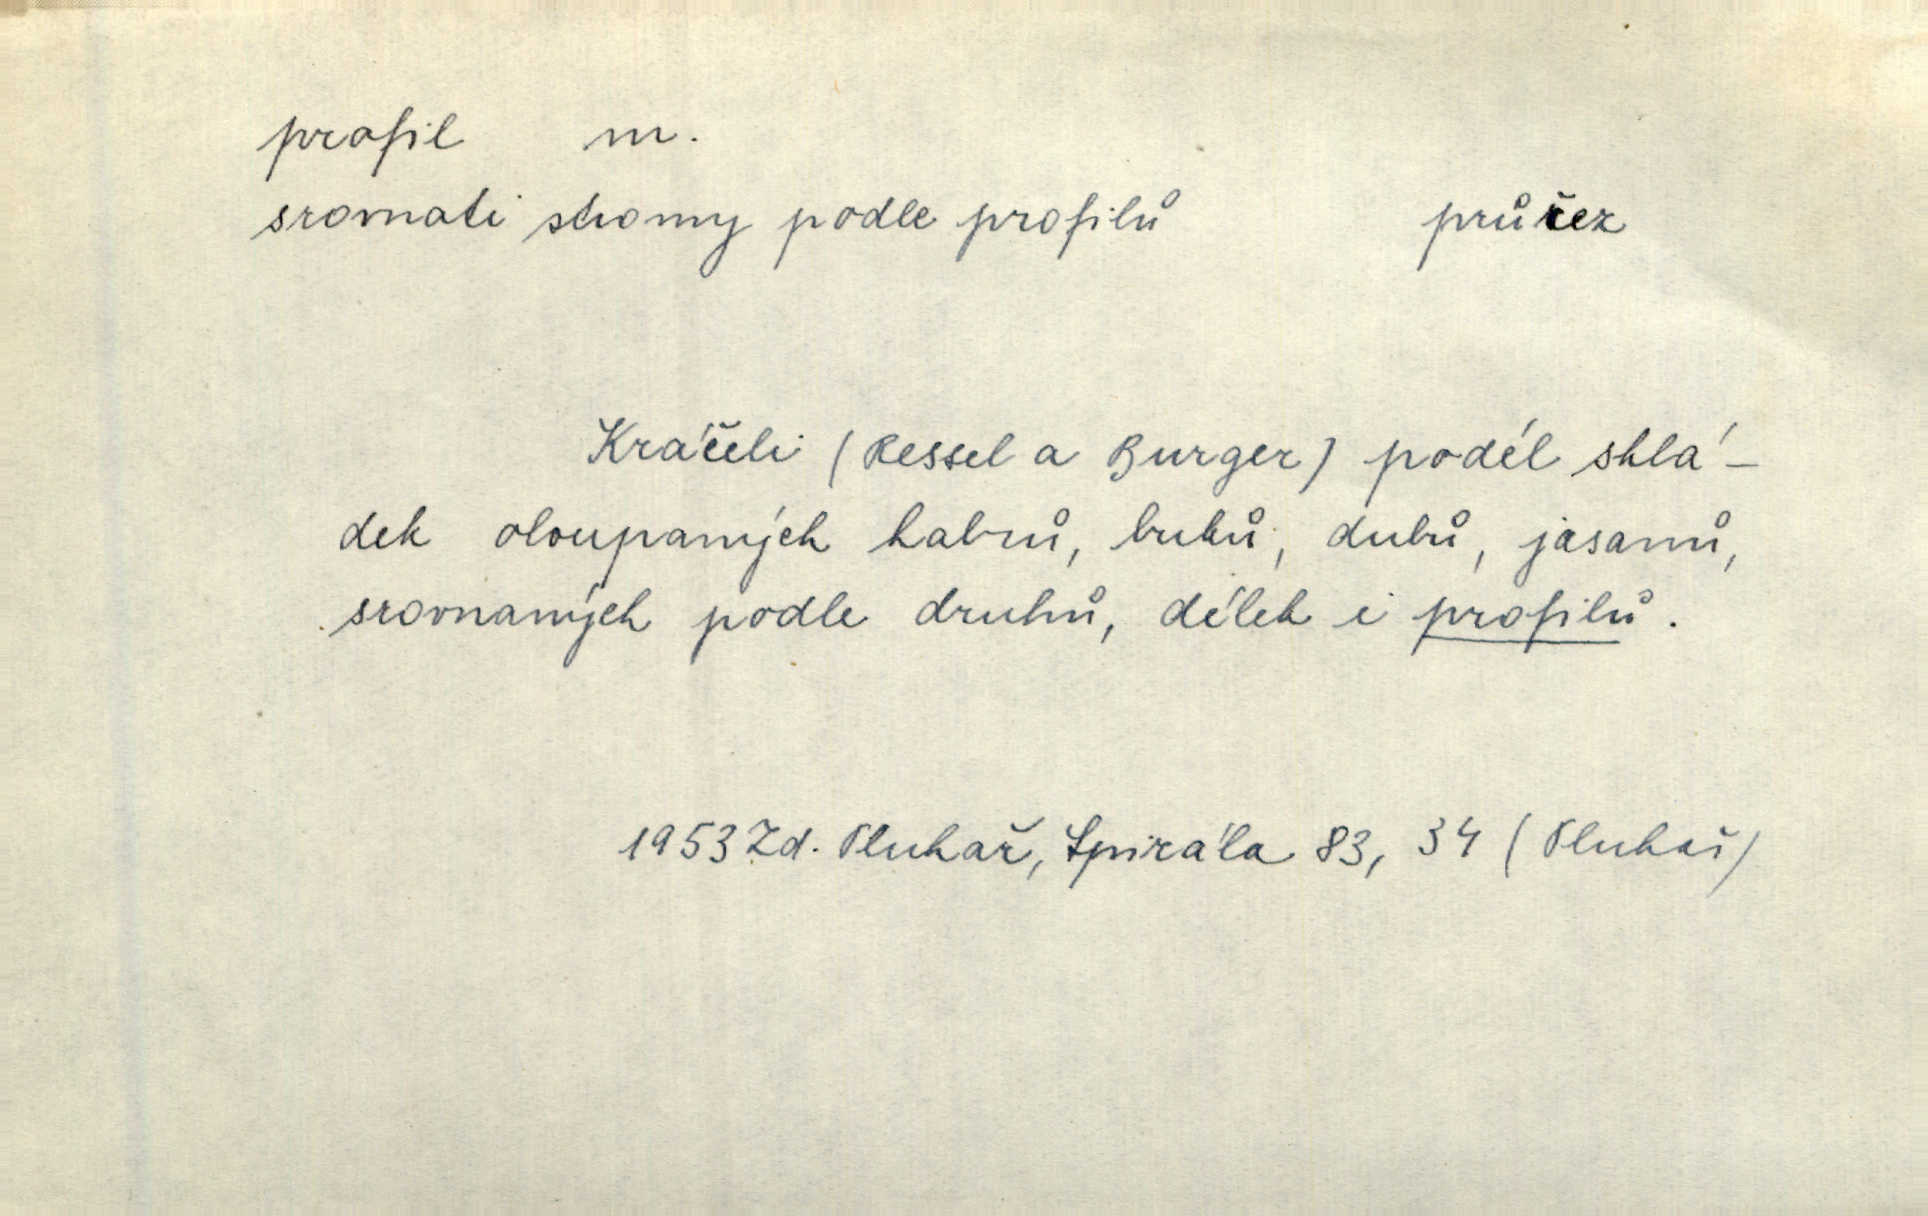 profil m.
srovnati stromy podle profilů průřez
Kráčeli (Ressel a Burger) podél sklá-
dek oloupaných habrů, buků, dubů, jasanů,
srovnaných podle druhů, délek i profilů.
1953 Zd. Pluhař, Spirála 83, 34 (Pluhař)